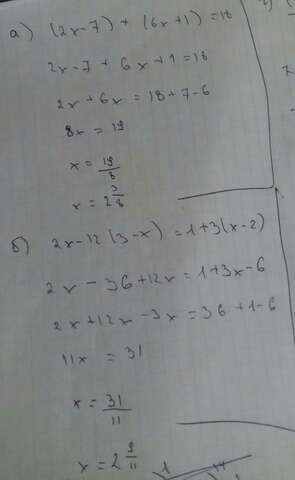 а) (2x-7) + (6x+1) = 18
2x-7+6x+1=18
2x+6x=18+7-6
8x=19
x=19/8
x=2 3/8
б) 2x-12(3-x)=1+3(x-2)
2x-36+12x=1+3x-6
2x+12x-3x=36+1-6
11x=31
x=31/11
x=2 9/11